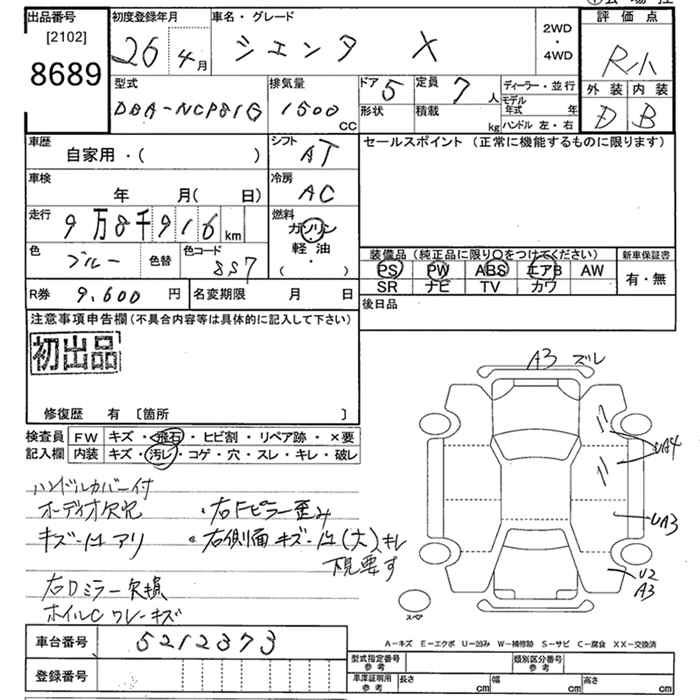 出品番号
[2102]
8689
初度登録年月
26 4月
車名・グレード
シエンタ X
2WD
・
4WD
評価点
R小
外装 内装
D B
型式
DBA-NCP81G
排気量
1500 CC
ドア 5
形状
定員 7 人
積載 kg
ディーラー・並行
モデル年式 年
ハンドル 左・右
車歴
自家用・( )
シフト
AT
セールスポイント (正常に機能するものに限ります)
車検
年 月( 日)
冷房
AC
走行
9万8千916 km
燃料
ガソリン
軽油
( ・ )
色
ブルー
色替
色コード
8S7
装備品 (純正品に限り○をつけてください)
PS PW ABS エアB AW
SR ナビ TV カワ
新車保証書
有・無
R券 9,600 円
名変期限 月 日
後日品
注意事項申告欄(不具合内容等は具体的に記入して下さい)
初出品
修復歴 有 〔箇所 〕
検査員記入欄
FW キズ・飛石・ヒビ割・リペア跡・×要
内装 キズ・汚レ・コゲ・穴・スレ・キレ・破レ
A3 ズレ
UA4
UA3
U2
A3
スペア
ハンドルカバー付
オーディオ欠品 ・右Fピラー歪み
キズ・凹アリ ・右側面キズ・凹(大)キレ
下見要す
右Dミラー欠損
ホイルC ワレ・キズ
車台番号 5212373
登録番号
A−キズ E−エクボ U−凹み W−補修跡 S−サビ C−腐食 XX−交換済
型式指定番号参考
類別区分番号参考
車庫証明用参考 長さ cm 幅 cm 高さ cm